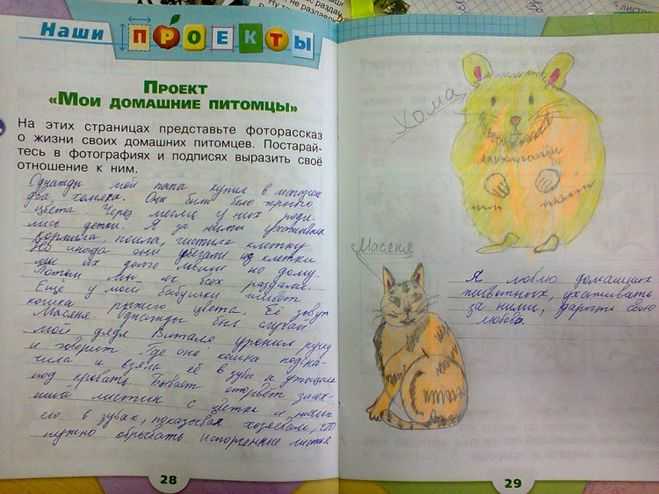 Наши ПРОЕКТЫ
ПРОЕКТ
«МОИ ДОМАШНИЕ ПИТОМЦЫ»
На этих страницах представьте фоторассказ
о жизни своих домашних питомцев. Постарай-
тесь в фотографиях и подписях выразить своё
отношение к ним.
Однажды мой папа купил в магазине
два хомяка. Они были бело-
цвета. Через месяц у них роди-
лись детки. Я за ними ухаживала
кормила, поила, чистила клетку
они убегали из клетки
их долго ловили по дому.
Потом мы их всех раздали.
Ещё у моей бабушки живёт
кошка рыжего цвета. Её зовут
Масяня. Однажды был случай
мой дядя Виталя уронил ручку
и говорит Где она кошка подска-
чила и взяла её в зубы и утащила
под кровать. Бывает оторвёт
листик с цветка и
его в зубах, показывая хозяевам, что
нужно обрывать испорченные листья
28
Хома
Масяня
Я люблю домашних
животных, ухаживать
за ними, дарить свою
любовь.
29